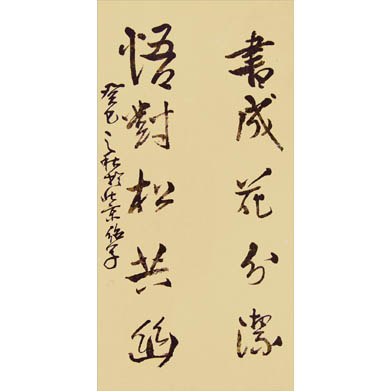 書成花分潔
悟對松共幽
癸巳之秋於北京